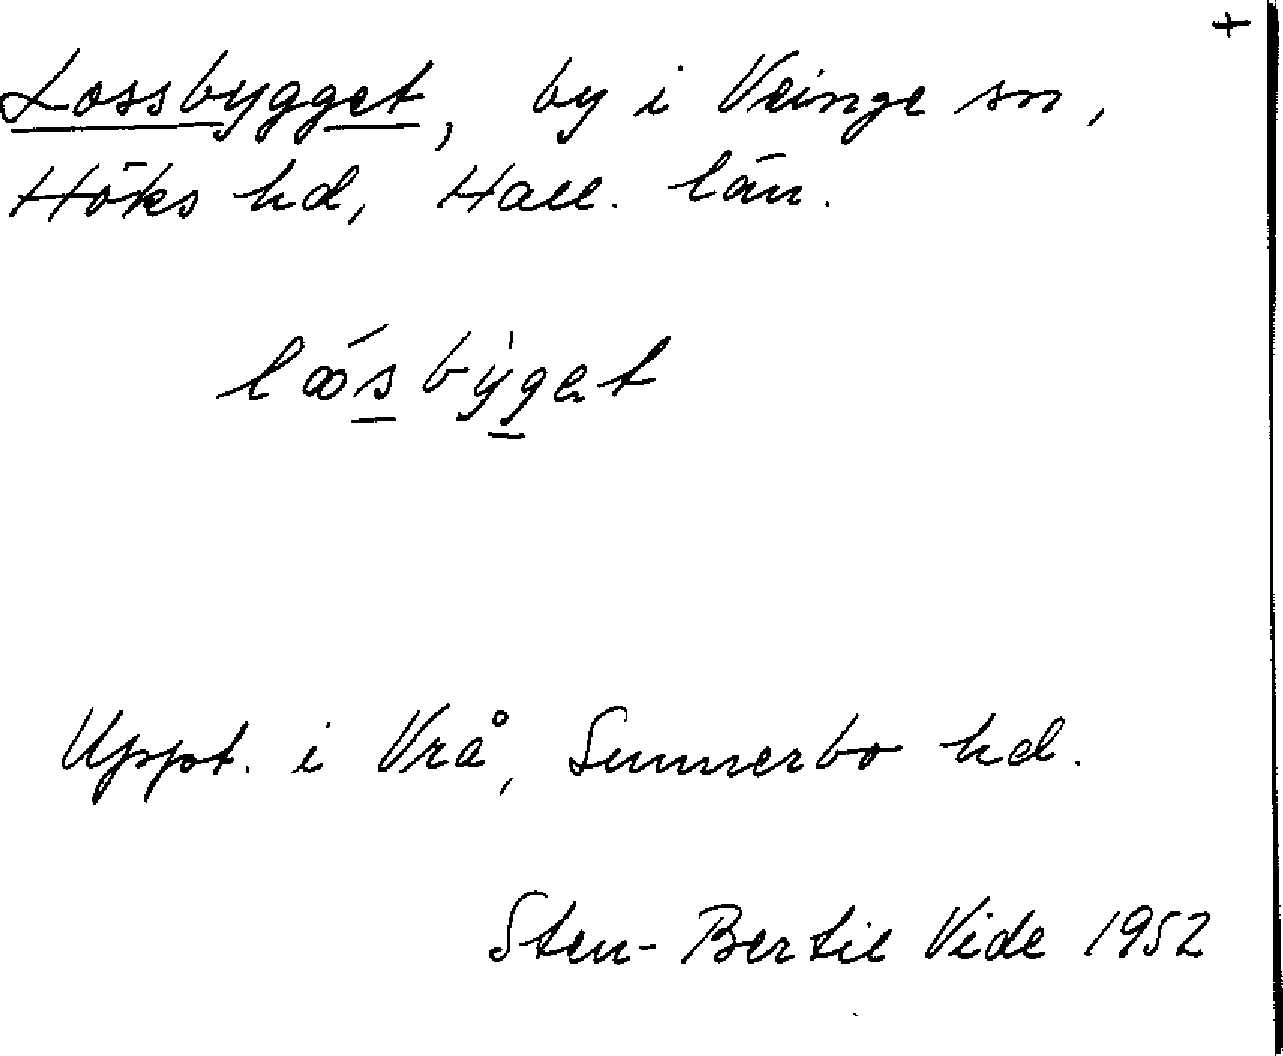 +
Lossbygget, by i Veinge sn,
Höks hd, Hall. län.
Uppt. i Vrå, Sunnerbo hd.
Sten-Bertil Vide 1952